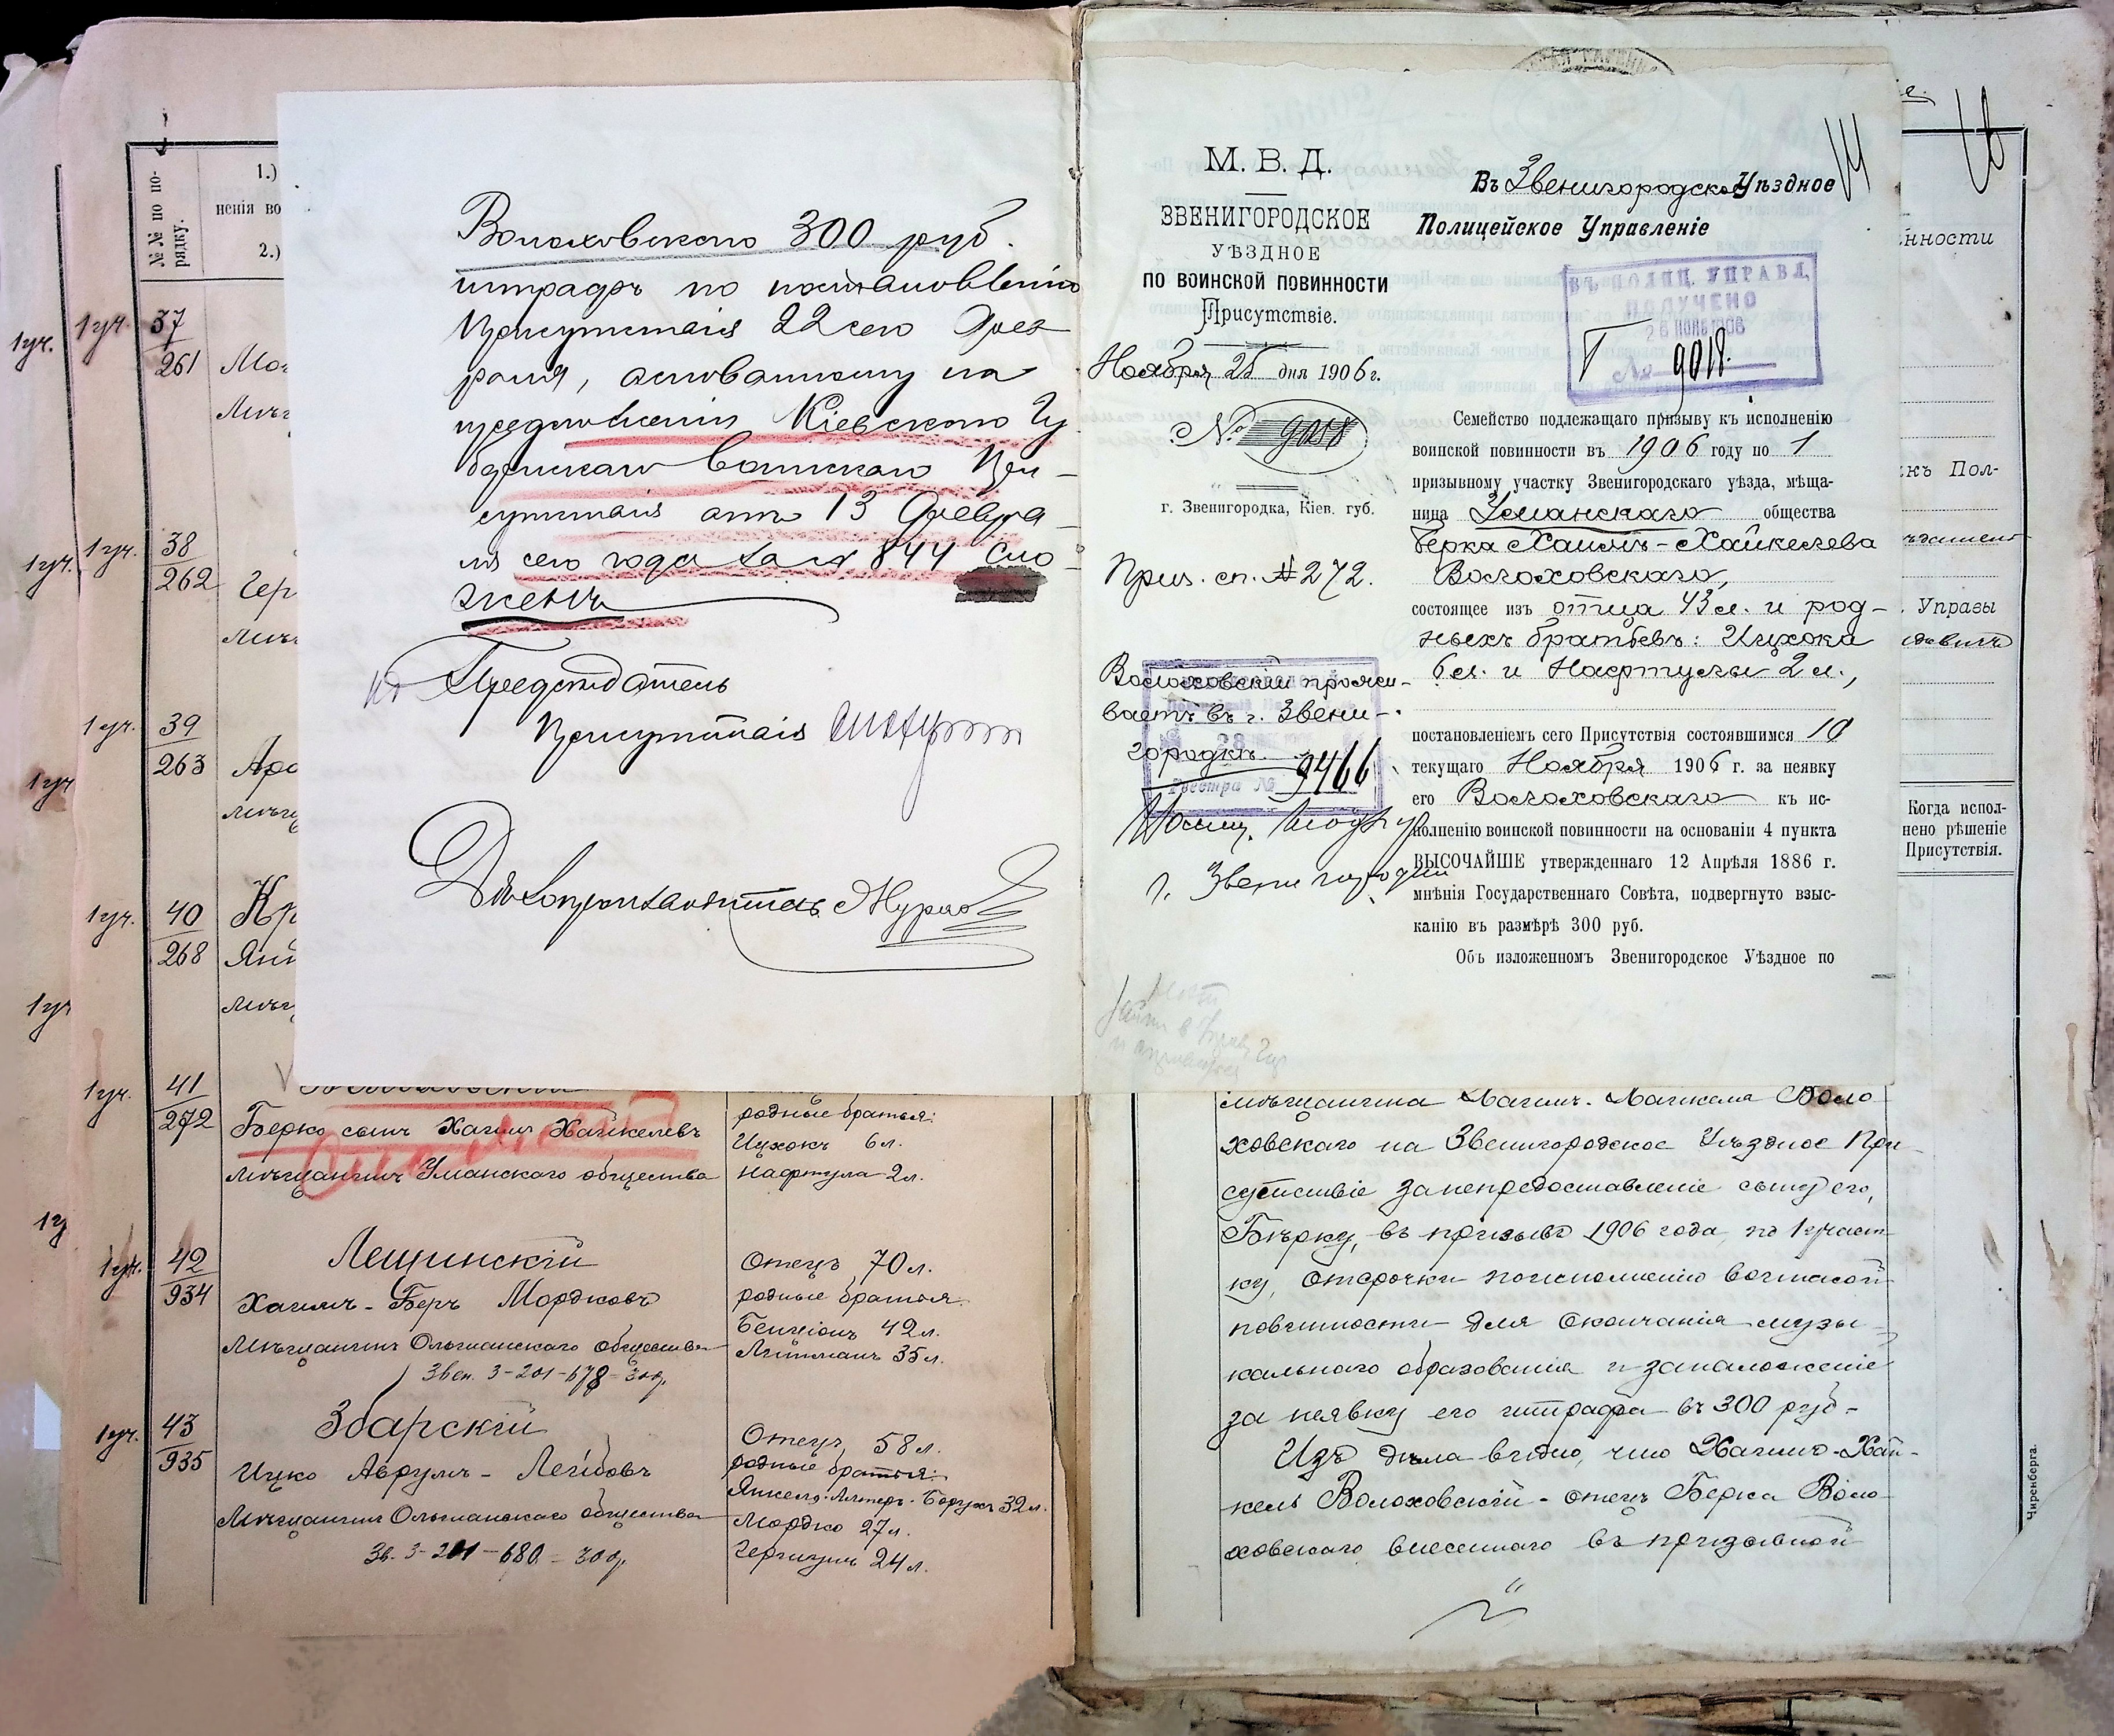 № № по по-
рядку.
1.)
ненія во
2.)
1 уч.
1 уч.
37
261
Мог
1 уч.
1 уч.
38
262
Гер
1 уч.
39
263
Аро
1 уч
1 уч.
40
268
Кр
Янк
1 уч
1 уч.
41
272
Берко сынъ Хаимъ Хайкелевъ
мѣщанинъ Уманскаго общества
родные братья:
Ицхокъ 6 л.
Нафтула 2 л.
1 у
1 уч.
42
934
Лещинскій
Хаимъ-Беръ Мордковъ
мѣщанинъ Ольшанскаго общества
Звен. 3-201-678-300р.
Отецъ 70 л.
родные братья:
Бенціонъ 42 л.
Липманъ 35 л.
1 уч.
43
935
Збарскій
Ицко Аврумъ-Лейбовъ
Мѣщанинъ Ольшанскаго общества
Зв. 3-201-680-300р.
Отецъ 58 л.
родные братья:
Янкель-Альтеръ-Борухъ 32 л.
Мордко 27 л.
Гершунъ 24 л.
Волоховскаго 300 руб.
штрафъ по постановленію
Присутствія 22 сего Фев-
раля, основанному на
предложеніи Кіевскаго Гу
бернскаго воинскаго При-
сутствія отъ 13 Февра-
ля сего года за № 844 сло-
женъ
Предсѣдатель
Присутствія
Дѣлопроизводитель
М. В. Д.
ЗВЕНИГОРОДСКОЕ
УѢЗДНОЕ
ПО ВОИНСКОЙ ПОВИННОСТИ
Присутствіе.
Ноября 25 дня 1906 г.
№ 9018
г. Звенигородка, Кіев. губ.
Приз. сп. № 272.
Волоховскій прожи-
ваетъ въ г. Звени-
городкѣ.
Реестра № 9466
г. Звенигородки
Въ Звенигородское Уѣздное
Полицейское Управленіе
ВЪ ПОЛИЦ. УПРАВЛ.
ПОЛУЧЕНО
26 НОЯБ 1906
№ 9018.
Семейство подлежащаго призыву къ исполненію
воинской повинности въ 1906 году по 1
призывному участку Звенигородскаго уѣзда, мѣща-
нина Уманскаго общества
Берка Хаимъ-Хайкелева
Волоховскаго,
состоящее изъ отца 43 л. и род-
ныхъ братьевъ: Ицхока
6 л. и Нафтулы 2 л.,
постановленіемъ сего Присутствія состоявшимся 10
текущаго Ноября 1906 г. за неявку
его Волоховскаго къ ис-
полненію воинской повинности на основаніи 4 пункта
ВЫСОЧАЙШЕ утвержденнаго 12 Апрѣля 1886 г.
мнѣнія Государственнаго Совѣта, подвергнуто взыс-
канію въ размѣрѣ 300 руб.
Объ изложенномъ Звенигородское Уѣздное по
нности
къ Пол-
Управы
Когда испол-
нено рѣшеніе
Присутствія.
мѣщанина Хаимъ-Хайкеля Воло
ховскаго на Звенигородское Уѣздное При
сутствіе за непредоставленіе сыну его,
Берку, въ призывъ 1906 года по 1 участ-
ку, отсрочки по исполненію воинской
повинности для окончанія музы-
кальнаго образованія и за наложеніе
за неявку его штрафа въ 300 руб-
Изъ дѣла видно, что Хаимъ-Хай-
кель Волоховскій-отецъ Берка Воло
ховскаго внесеннаго въ призывной
Чиренберга.